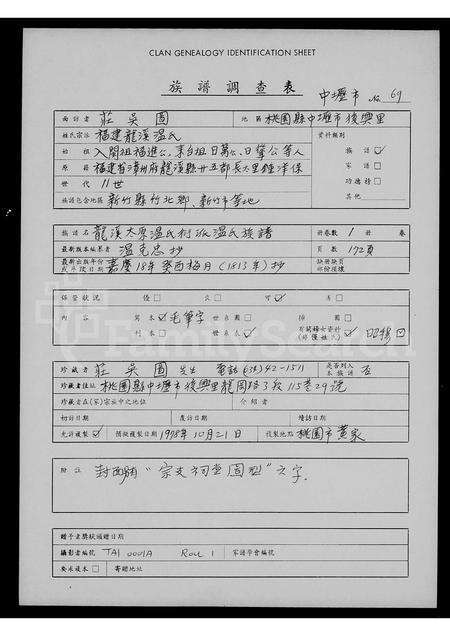 CLAN GENEALOGY IDENTIFICATION SHEET
族譜調查表 中壢市 No 69
面訪者 莊吳圓 地區 桃園縣中壢市復興里
姓氏宗派 福建龍溪溫氏 資料類別
始祖 入閩祖福進公,來台祖日萬公、日肇公等人 族譜 ✓
原籍 福建省漳州府龍溪縣廿五都長大里 家譜 □
世代 11世 功德榜 □
族譜包含地區 新竹縣竹北鄉、新竹市等地 其他
族譜名 龍溪太原溫氏 溫氏族譜 冊卷數 1 冊 卷
最新版本編纂者 溫克忠抄 頁數 172頁
最新出版年份或手稿日期 嘉慶18年癸酉梅月(1813年)抄 缺掉缺頁部份損壞
保管狀況 優□ 良□ 可✓ 劣□
內容 寫本✓毛筆字 世系圖□ 插圖□
刊本□ 世系表✓ 有關婦女資料(非僅姓氏) □
珍藏者 莊吳圓 先生 電話(034)42-1511 是否列入本族譜 否
珍藏者住址 桃園縣中壢市復興里龍岡路3段115巷29號
珍藏者在(家)宗去中之地位 介紹者
初訪日期 覆訪日期 續訪日期
允許複製✓ 開始複製日期 1978年10月21日 複製地點 桃園市黃家
附註 封面有“宗支祠堂圖型”六字.
贈予者獎狀頒贈日期
攝影者編號 TAI 0001A Roll 1 家譜學會編號
要求複本□ 寄贈地址
FamilySearch